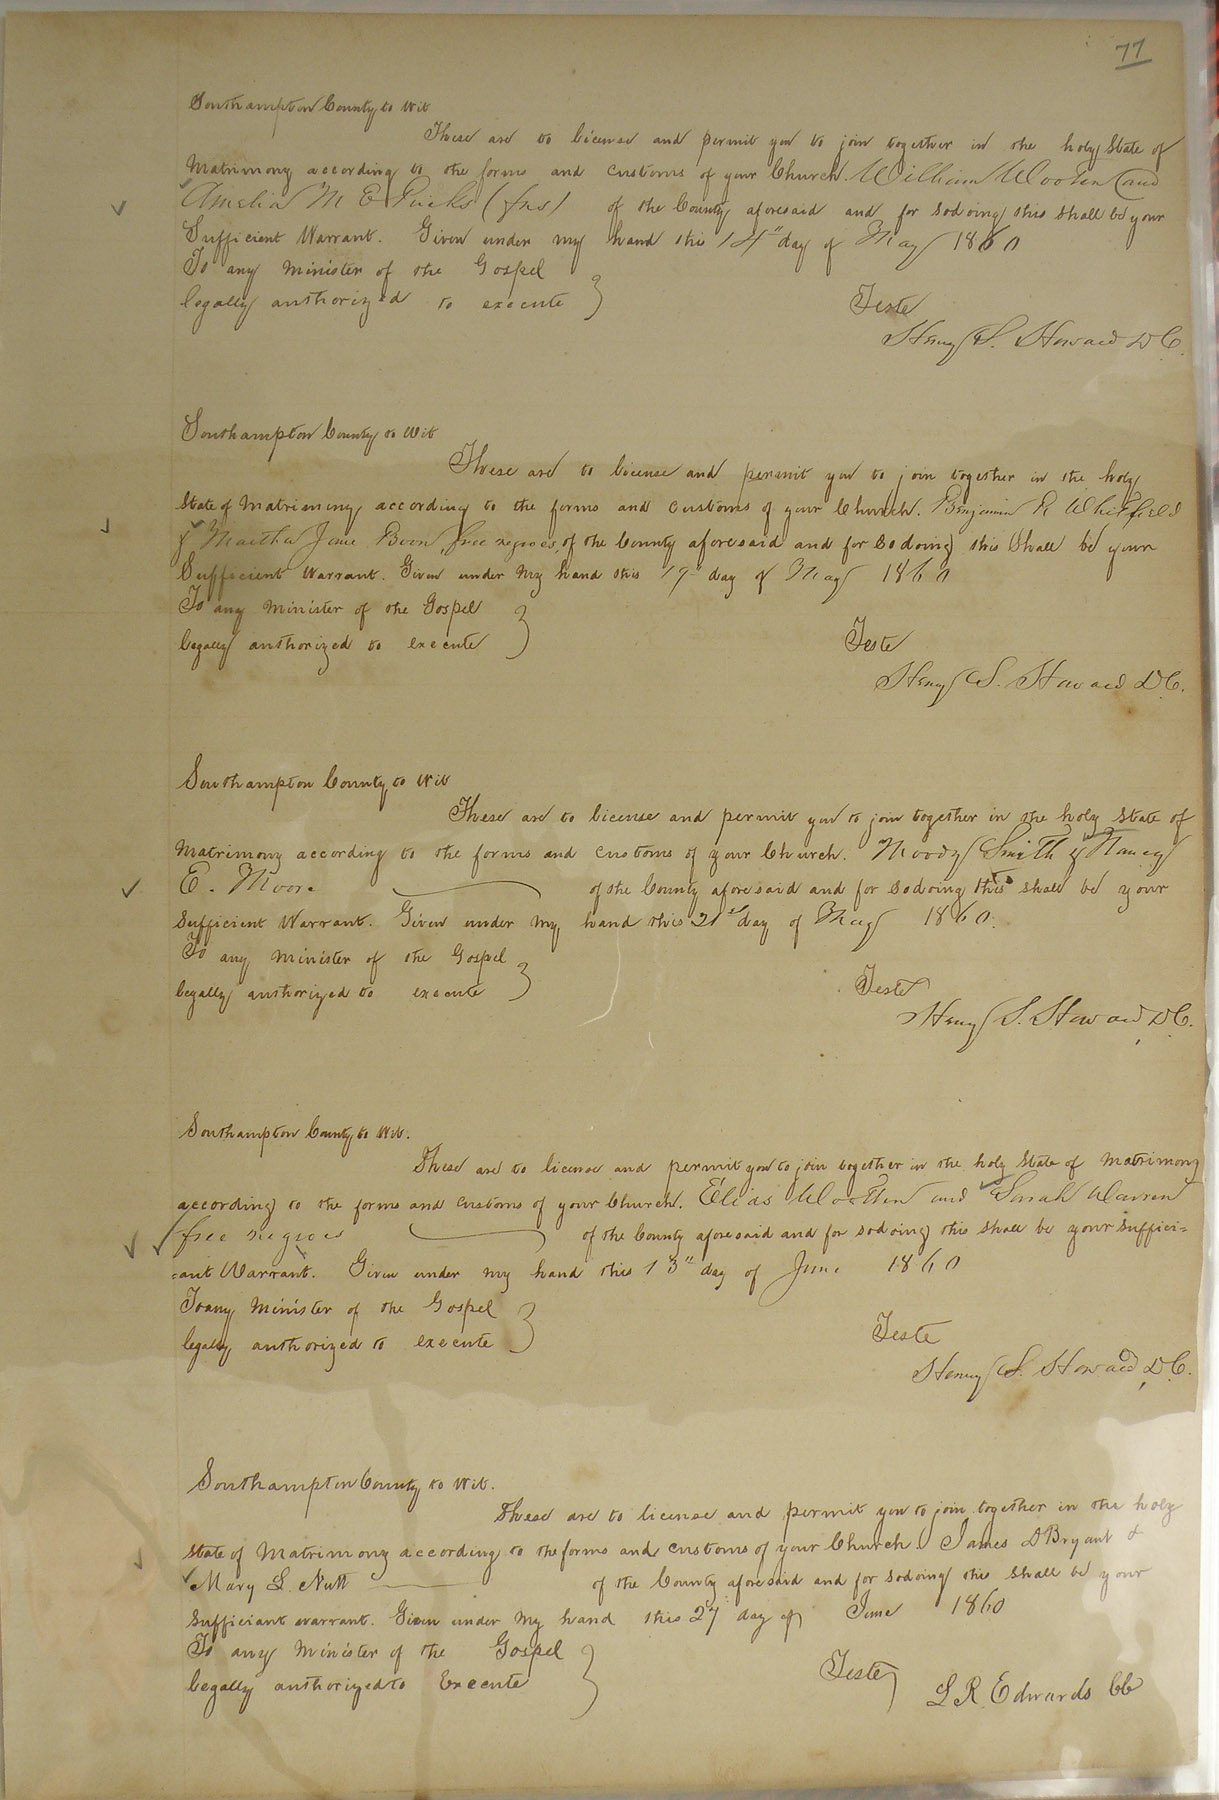 77
Southampton County to Wit
These are to license and permit you to join together in the holy State of
Matrimony according to the forms and customs of your Church. William Wooten and
Amelia M E Ricks (fns) of the County aforesaid and for so doing this shall be your
Sufficient Warrant. Given under my hand this 14" day of May 1860
To any Minister of the Gospel
legally authorized to execute
Teste
Henry S. Howard D C.
Southampton County to Wit
These are to license and permit you to join together in the holy
State of Matrimony according to the forms and customs of your Church. Benjamin R Whitfield
& Martha Jane Boon, free negroes, of the County aforesaid and for so doing this Shall be your
Sufficient Warrant. Given under My hand this 19 day of May 1860
To any Minister of the Gospel
legally authorized to execute
Teste
Henry S. Howard D C.
Southampton County to Wit
These are to license and permit you to join together in the holy State of
Matrimony according to the forms and customs of your Church. Moody Smith & Nancy
E. Moore of the County aforesaid and for so doing this shall be your
Sufficient Warrant. Given under my hand this 21st day of May 1860.
To any Minister of the Gospel
legally authorized to execute
Teste
Henry S. Howard, D C.
Southampton County to Wit.
These are to license and permit you to join together in the holy State of Matrimony
according to the forms and customs of your Church. Elias Wootten and Sarah Warren
free negroes of the County aforesaid and for so doing this shall be your suffici=
=ant Warrant. Given under my hand this 13" day of June 1860
To any Minister of the Gospel
legally authorized to execute
Teste
Henry S. Howard, D C.
Southampton County to Wit.
These are to license and permit you to join together in the holy
State of Matrimony according to the forms and customs of your Church James D Bryant &
Mary L. Nutt of the County aforesaid and for so doing this shall be your
sufficiant warrant. Given under My hand this 27 day of June 1860
To any Minister of the Gospel
legally authorized to Execute
Teste
L R. Edwards CC